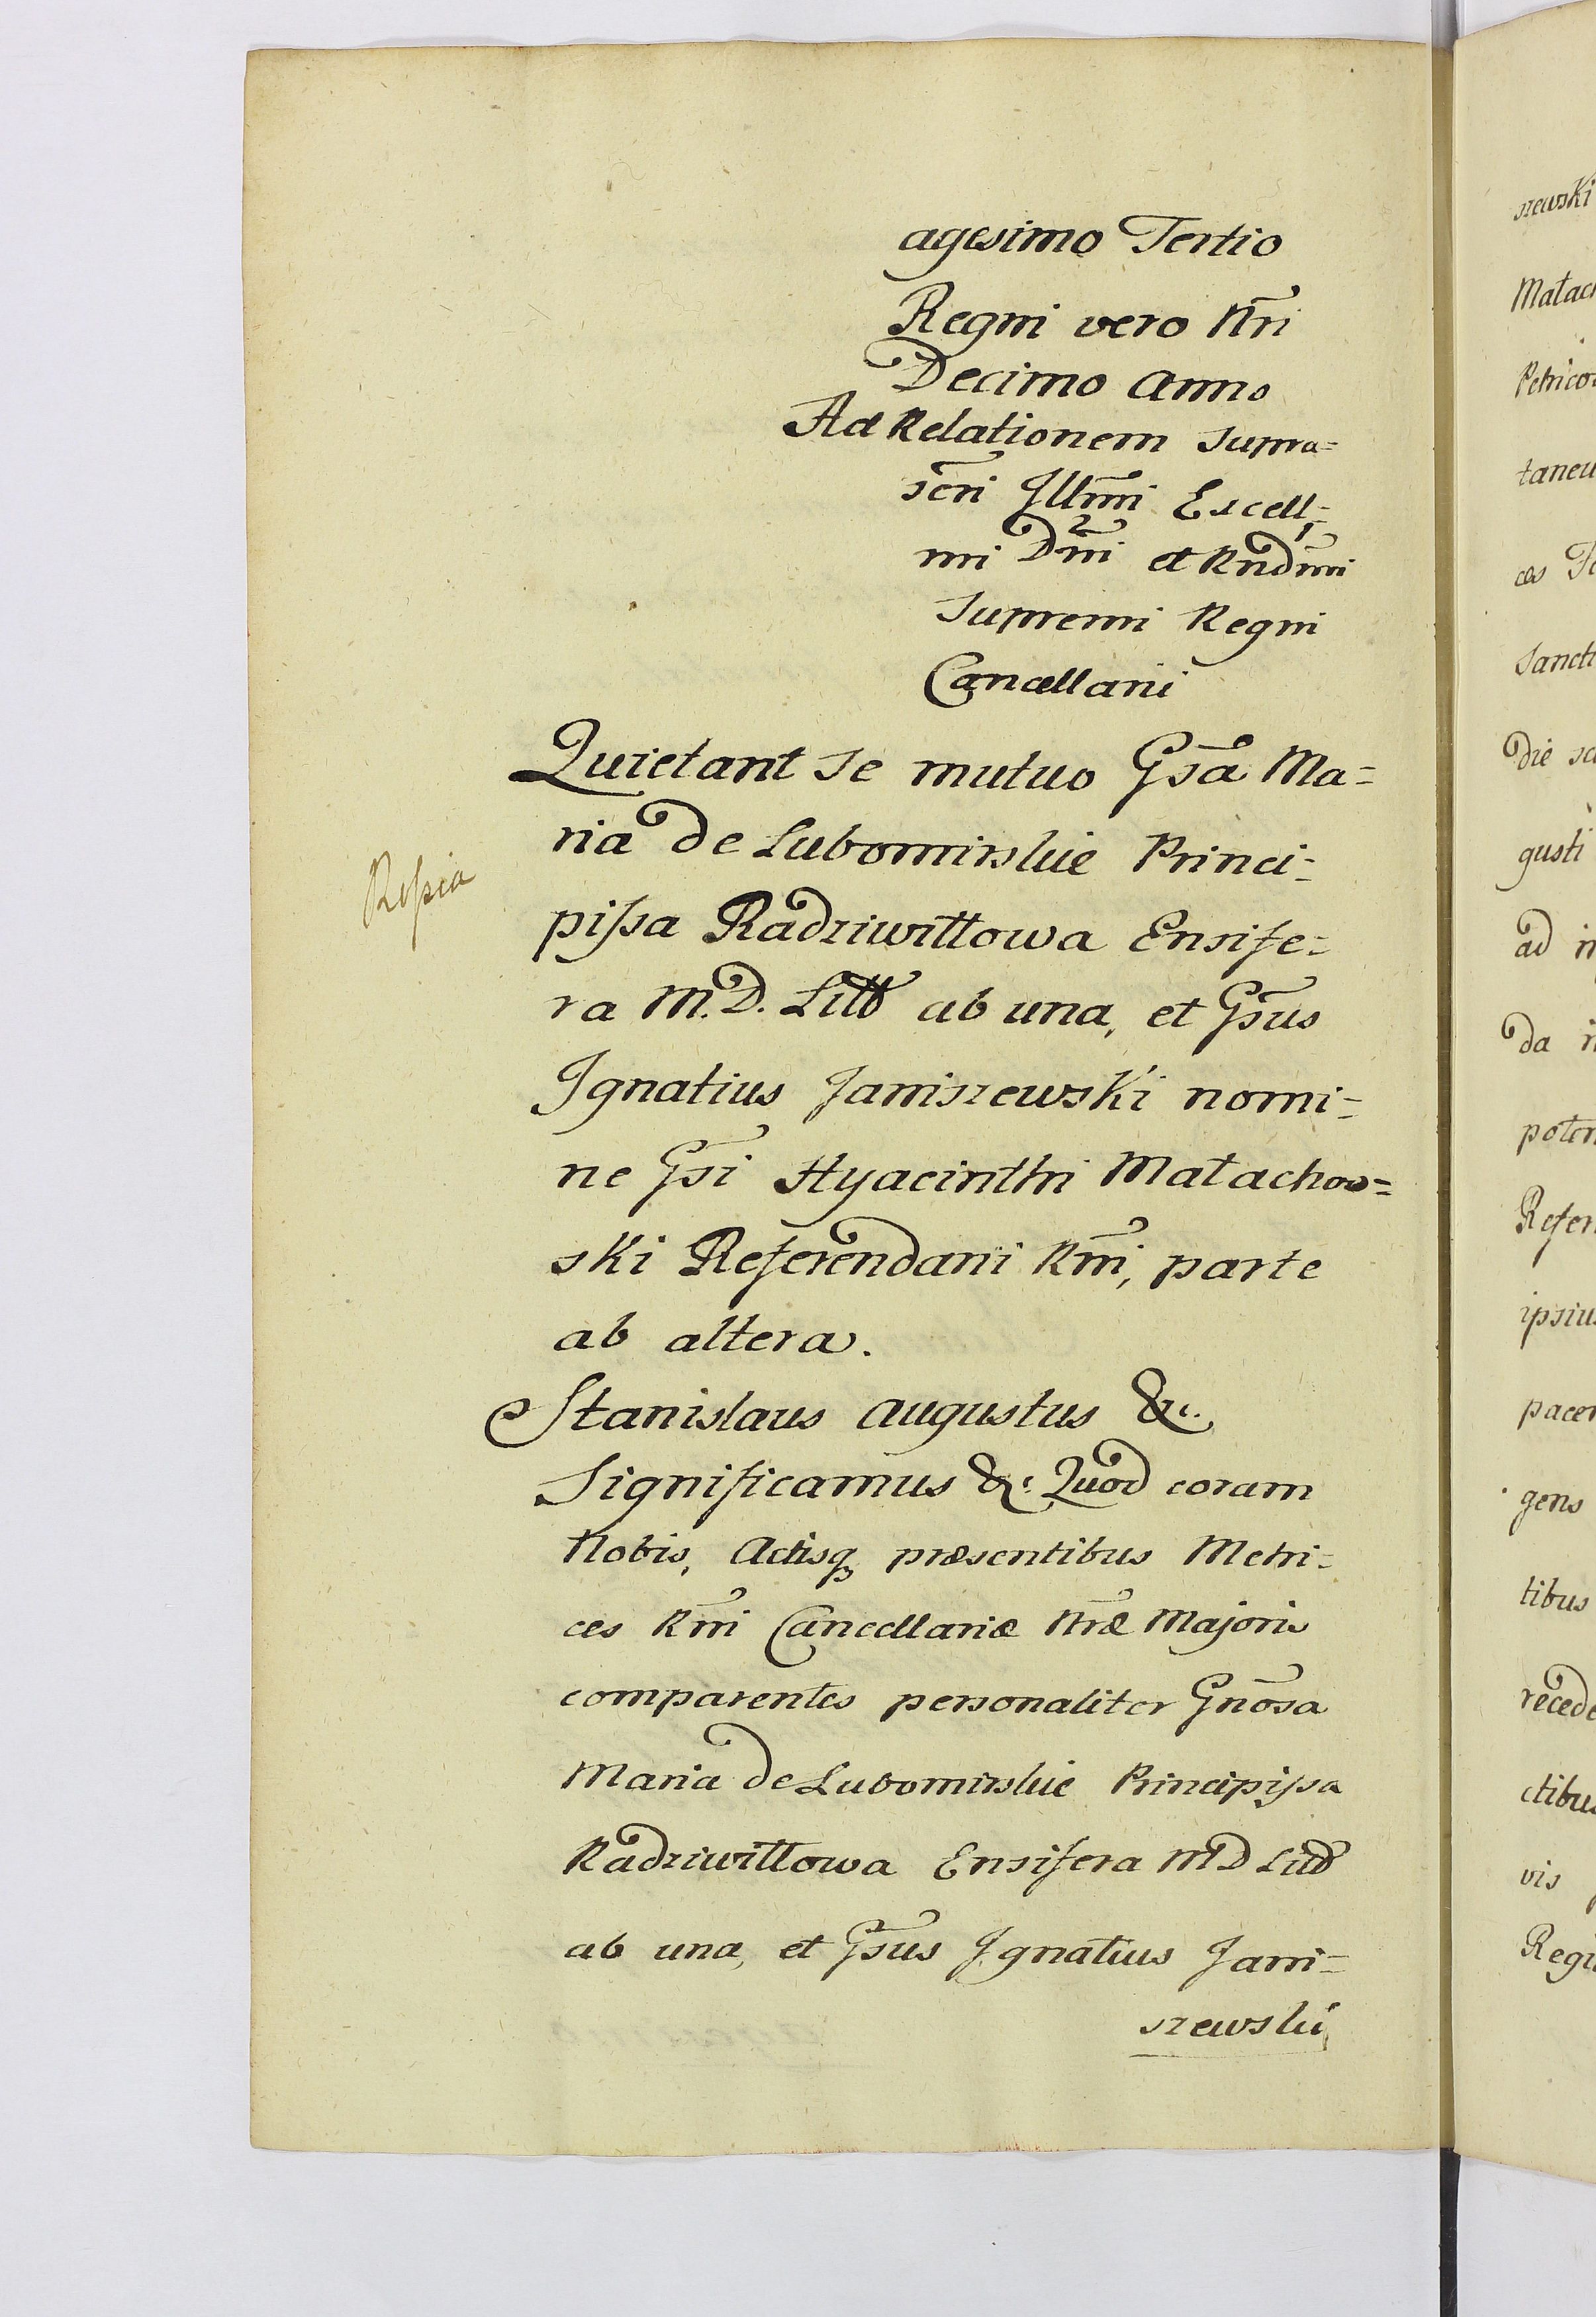 agesimo Tertio
Regni vero Nr̃i
Decimo Anno
Ad Relationem Supra=
scr̃i Jllm̃i Excell=
mi Dñi et Rñdm̃i
Supremi Regni
Cancellarii
Quietant se mutuo Gs̃a Ma=
ria de Lubomirskie Princi=
pissa Radziwiłłowa Ensife=
ra M.D. Litt ab una, et Gs̃us
Jgnatius Janiszewski nomi=
ne Gs̃i Hyacinthi Małachow=
ski Referendarii Rñi, parte
ab altera.
Stanislaus Augustus &c.
Significamus &c. Quod coram
Nobis, Actisq præsentibus Metri=
ces Rñi Cancellariæ Nr̃æ Majoris
comparentes personaliter Gnõsa
Maria de Lubomirskie Principissa
Radziwiłłowa Ensifera M D Litt
ab una, et Gs̃us Jgnatius Jani=
szewski
szewski
Małach
Petrico
taneu
ces
Sancti
die
gusti
ad
da
poten
Refer
ipsius
pacen
gens
tibus
recede
ctibus
vis
Regi